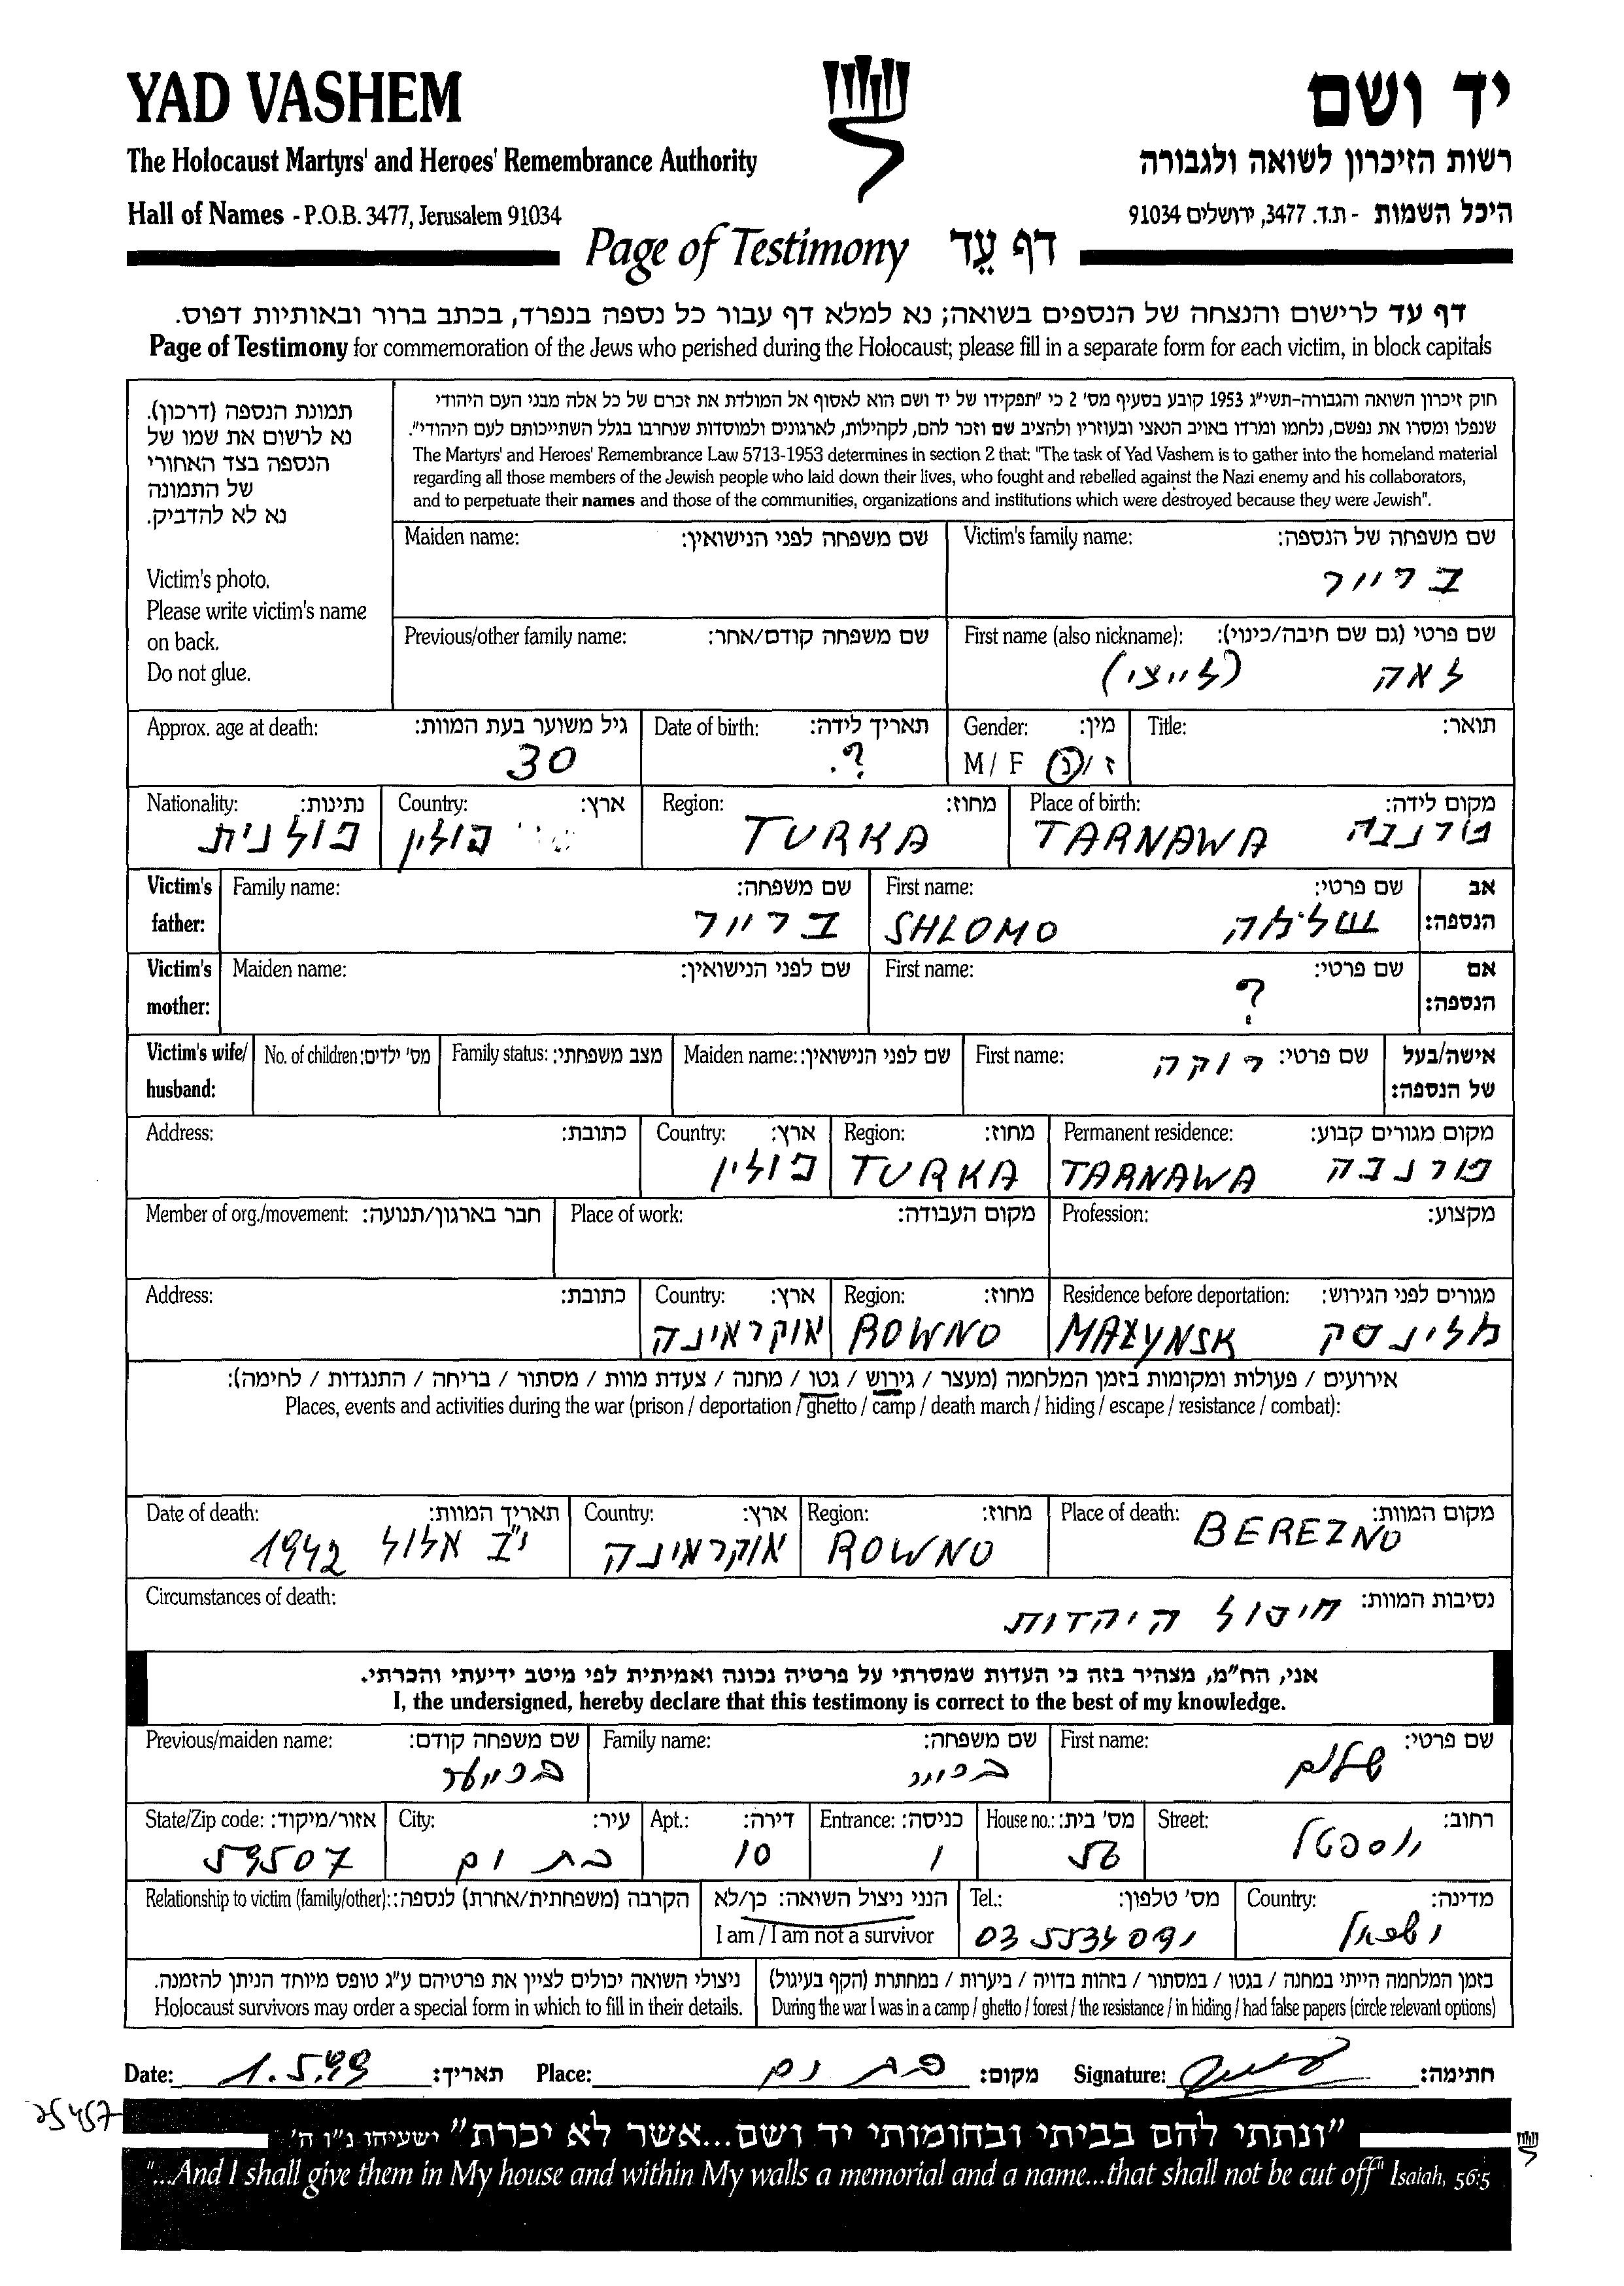 YAD VASHEM
יד ושם
The Holocaust Martyrs' and Heroes' Remembrance Authority
רשות הזיכרון לשואה ולגבורה
Hall of Names - P.O.B. 3477, Jerusalem 91034
היכל השמות - ת.ד. 3477, ירושלים 91034
Page of Testimony דף עֵד
דף עד לרישום והנצחה של הנספים בשואה; נא למלא דף עבור כל נספה בנפרד, בכתב ברור ובאותיות דפוס.
Page of Testimony for commemoration of the Jews who perished during the Holocaust; please fill in a separate form for each victim, in block capitals
תמונת הנספה (דרכון).
נא לרשום את שמו של
הנספה בצד האחורי
של התמונה
נא לא להדביק.
Victim's photo.
Please write victim's name
on back.
Do not glue.
חוק זיכרון השואה והגבורה-תשי"ג 1953 קובע בסעיף מס' 2 כי "תפקידו של יד ושם הוא לאסוף אל המולדת את זכרם של כל אלה מבני העם היהודי
שנפלו ומסרו את נפשם, נלחמו ומרדו באויב הנאצי ובעוזריו ולהציב שם וזכר להם, לקהילות, לארגונים ולמוסדות שנחרבו בגלל השתייכותם לעם היהודי".
The Martyrs' and Heroes' Remembrance Law 5713-1953 determines in section 2 that: "The task of Yad Vashem is to gather into the homeland material
regarding all those members of the Jewish people who laid down their lives, who fought and rebelled against the Nazi enemy and his collaborators,
and to perpetuate their names and those of the communities, organizations and institutions which were destroyed because they were Jewish".
Victim's family name: שם משפחה של הנספה:
ברייר
Maiden name: שם משפחה לפני הנישואין:
First name (also nickname): שם פרטי (גם שם חיבה/כינוי):
לאה (לייצי)
Previous/other family name: שם משפחה קודם/אחר:
Title: תואר:
Gender: מין:
M / F ז / נ
Date of birth: תאריך לידה:
?
Approx. age at death: גיל משוער בעת המוות:
30
Place of birth: מקום לידה:
TARNAWA טורנבה
Region: מחוז:
TURKA
Country: ארץ:
פולין
Nationality: נתינות:
פולנית
Victim's father: אב הנספה:
First name: שם פרטי:
SHLOMO שלמה
Family name: שם משפחה:
ברייר
Victim's mother: אם הנספה:
First name: שם פרטי:
?
Maiden name: שם לפני הנישואין:
Victim's wife/ husband: אישה/בעל של הנספה:
First name: שם פרטי: רוקה
Maiden name: שם לפני הנישואין:
Family status: מצב משפחתי:
No. of children: מס' ילדים:
Permanent residence: מקום מגורים קבוע:
TARNAWA טורנבה
Region: מחוז:
TURKA
Country: ארץ:
פולין
Address: כתובת:
Profession: מקצוע:
Place of work: מקום העבודה:
Member of org./movement: חבר בארגון/תנועה:
Residence before deportation: מגורים לפני הגירוש:
MAŁYNSK מלינסק
Region: מחוז:
ROWNO
Country: ארץ:
אוקראינה
Address: כתובת:
אירועים / פעולות ומקומות בזמן המלחמה (מעצר / גירוש / גטו / מחנה / צעדת מוות / מסתור / בריחה / התנגדות / לחימה):
Places, events and activities during the war (prison / deportation / ghetto / camp / death march / hiding / escape / resistance / combat):
Place of death: מקום המוות:
BEREZNO
Region: מחוז:
ROWNO
Country: ארץ:
אוקראינה
Date of death: תאריך המוות:
י"ב אלול 1942
Circumstances of death: נסיבות המוות:
חיסול היהדות
אני, הח"מ, מצהיר בזה כי העדות שמסרתי על פרטיה נכונה ואמיתית לפי מיטב ידיעתי והכרתי.
I, the undersigned, hereby declare that this testimony is correct to the best of my knowledge.
First name: שם פרטי:
שלום
Family name: שם משפחה:
Previous/maiden name: שם משפחה קודם:
ברייער
Street: רחוב:
House no.: מס' בית:
Entrance: כניסה:
1
Apt.: דירה:
10
City: עיר:
בת ים
State/Zip code: אזור/מיקוד:
59507
Country: מדינה:
ישראל
Tel.: מס' טלפון:
הנני ניצול השואה: כן/לא
I am / I am not a survivor
Relationship to victim (family/other): הקרבה (משפחתית/אחרת) לנספה:
בזמן המלחמה הייתי במחנה / בגטו / במסתור / בזהות בדויה / ביערות / במחתרת (הקף בעיגול)
During the war I was in a camp / ghetto / forest / the resistance / in hiding / had false papers (circle relevant options)
ניצולי השואה יכולים לציין את פרטיהם ע"ג טופס מיוחד הניתן להזמנה.
Holocaust survivors may order a special form in which to fill in their details.
Date: 1.5.99 תאריך: Place: בת ים מקום: Signature: חתימה:
25457
"ונתתי להם בביתי ובחומותי יד ושם...אשר לא יכרת" ישעיהו נ"ו ה'
"...And I shall give them in My house and within My walls a memorial and a name...that shall not be cut off" Isaiah, 56:5